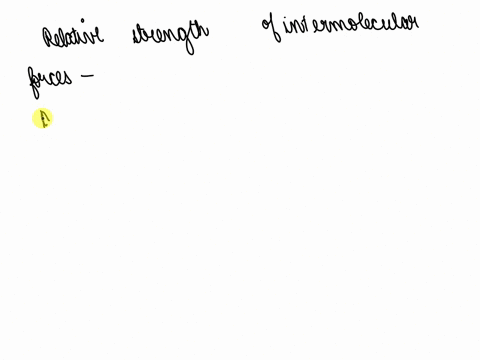 Relative strength of intermolecular
forces —
A